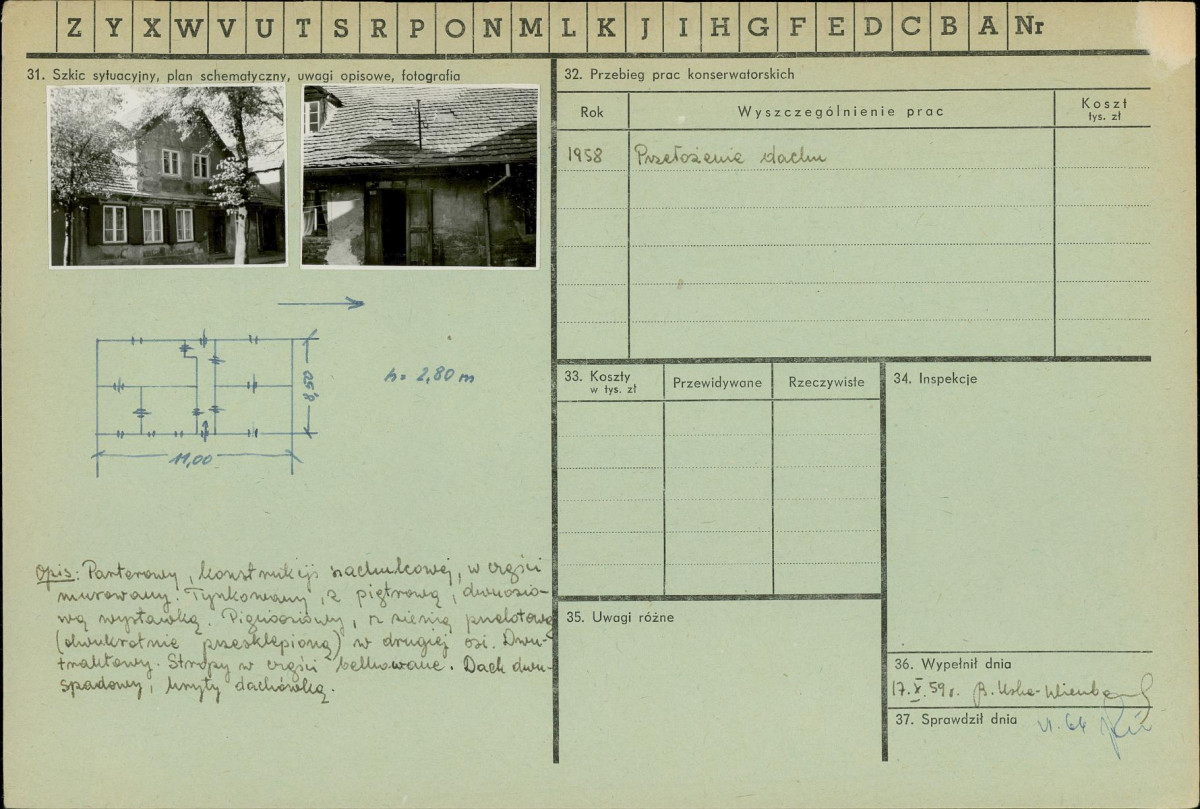 Z Y X W V U T S R P O N M L K J I H G F E D C B A Nr
31. Szkic sytuacyjny, plan schematyczny, uwagi opisowe, fotografia
8,50
h = 2,80 m
11,00
Opis: Parterowy, konstrukcji szachulcowej, w części
murowany. Tynkowany, z piętrową, dwuosio-
wą wystawką. Pięcioosiowy, z sienią przelotową
(dwukrotnie przesklepioną) w drugiej osi. Dwu-
traktowy. Stropy w części belkowane. Dach dwu-
spadowy, kryty dachówką.
32. Przebieg prac konserwatorskich
Rok Wyszczególnienie prac Koszt
tys. zł
1958 Przełożenie dachu
33. Koszty
w tys. zł
Przewidywane Rzeczywiste
34. Inspekcje
35. Uwagi różne
36. Wypełnił dnia
17.X.59r. B.
37. Sprawdził dnia
VI. 64